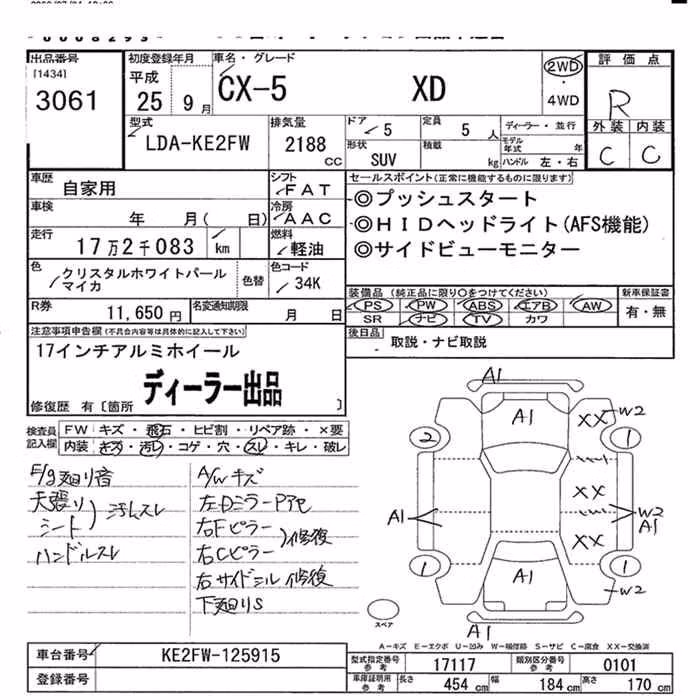 出品番号
[1434]
3061
初度登録年月
平成
25 9月
車名・グレード
CX-5 XD
2WD
・
4WD
評価点
R
外装 内装
C C
型式
LDA-KE2FW
排気量
2188
cc
ドア
5
定員
5人
ディーラー・並行
モデル年式 年
形状
SUV
積載
kg
ハンドル 左・右
車歴
自家用
シフト
FAT
車検
年 月( 日)
冷房
AAC
走行
17万2千083 km
燃料
軽油
色
クリスタルホワイトパール
マイカ
色替
色コード
34K
R券
11,650円
名変通知期限
月 日
セールスポイント(正常に機能するものに限ります)
◎プッシュスタート
◎HIDヘッドライト(AFS機能)
◎サイドビューモニター
装備品(純正品に限り○をつけてください)
PS PW ABS エアB AW
SR ナビ TV カワ
新車保証書
有・無
後日品
取説・ナビ取説
注意事項申告欄(不具合内容等は具体的に記入して下さい)
17インチアルミホイール
ディーラー出品
修復歴 有〔箇所 〕
検査員
記入欄
FW キズ・飛石・ヒビ割・リペア跡・×要
内装 キズ・汚レ・コゲ・穴・スレ・キレ・破レ
E/g廻り音
天張り
シート
汚れスレ
ハンドルスレ
A/Wキズ
左Dミラー
右Fピラー
右Cピラー
修復
右サイドシル修復
下廻りS
A1
A1
XX W2
2
1
XX
A1
W2
A1
XX
1
1
A1
W2
A1
スペア
A-キズ E-エクボ U-凹み W-補修跡 S-サビ C-腐食 XX-交換済
車台番号
KE2FW-125915
登録番号
型式指定番号
参考
17117
類別区分番号
参考
0101
車庫証明用
参考
長さ 454cm 幅 184cm 高さ 170cm